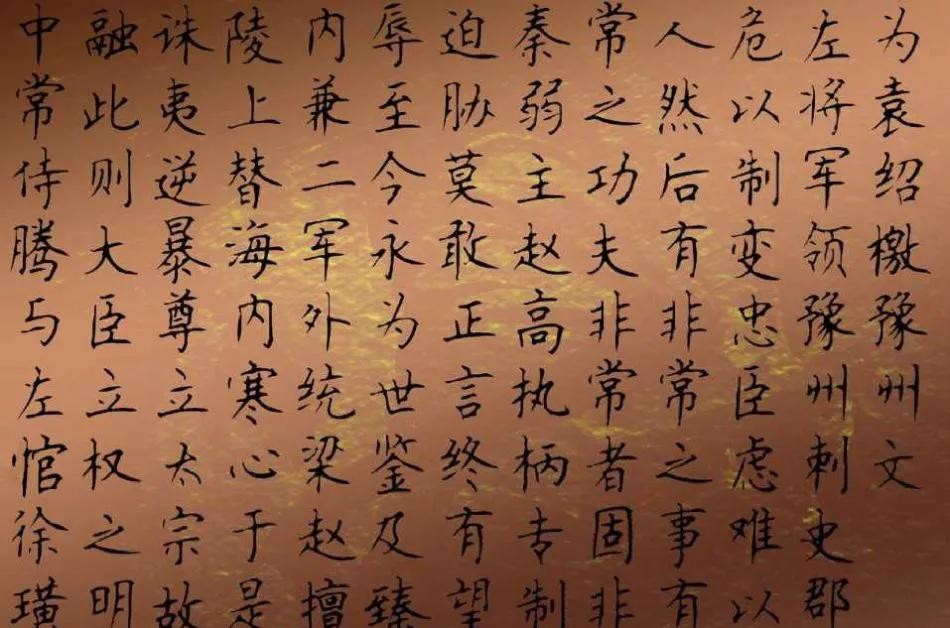 为袁绍檄豫州文
左将军领豫州刺史郡
危以制变忠臣虑难以
人然后有非常之事有
常之功夫非常者固非
秦弱主赵高执柄专制
迫胁莫敢正言终有望
辱至今永为世鉴及臻
内兼二军外统梁赵擅
陵上替海内寒心于是
诛夷逆暴尊立太宗故
融此则大臣立权之明
中常侍腾与左悺徐璜